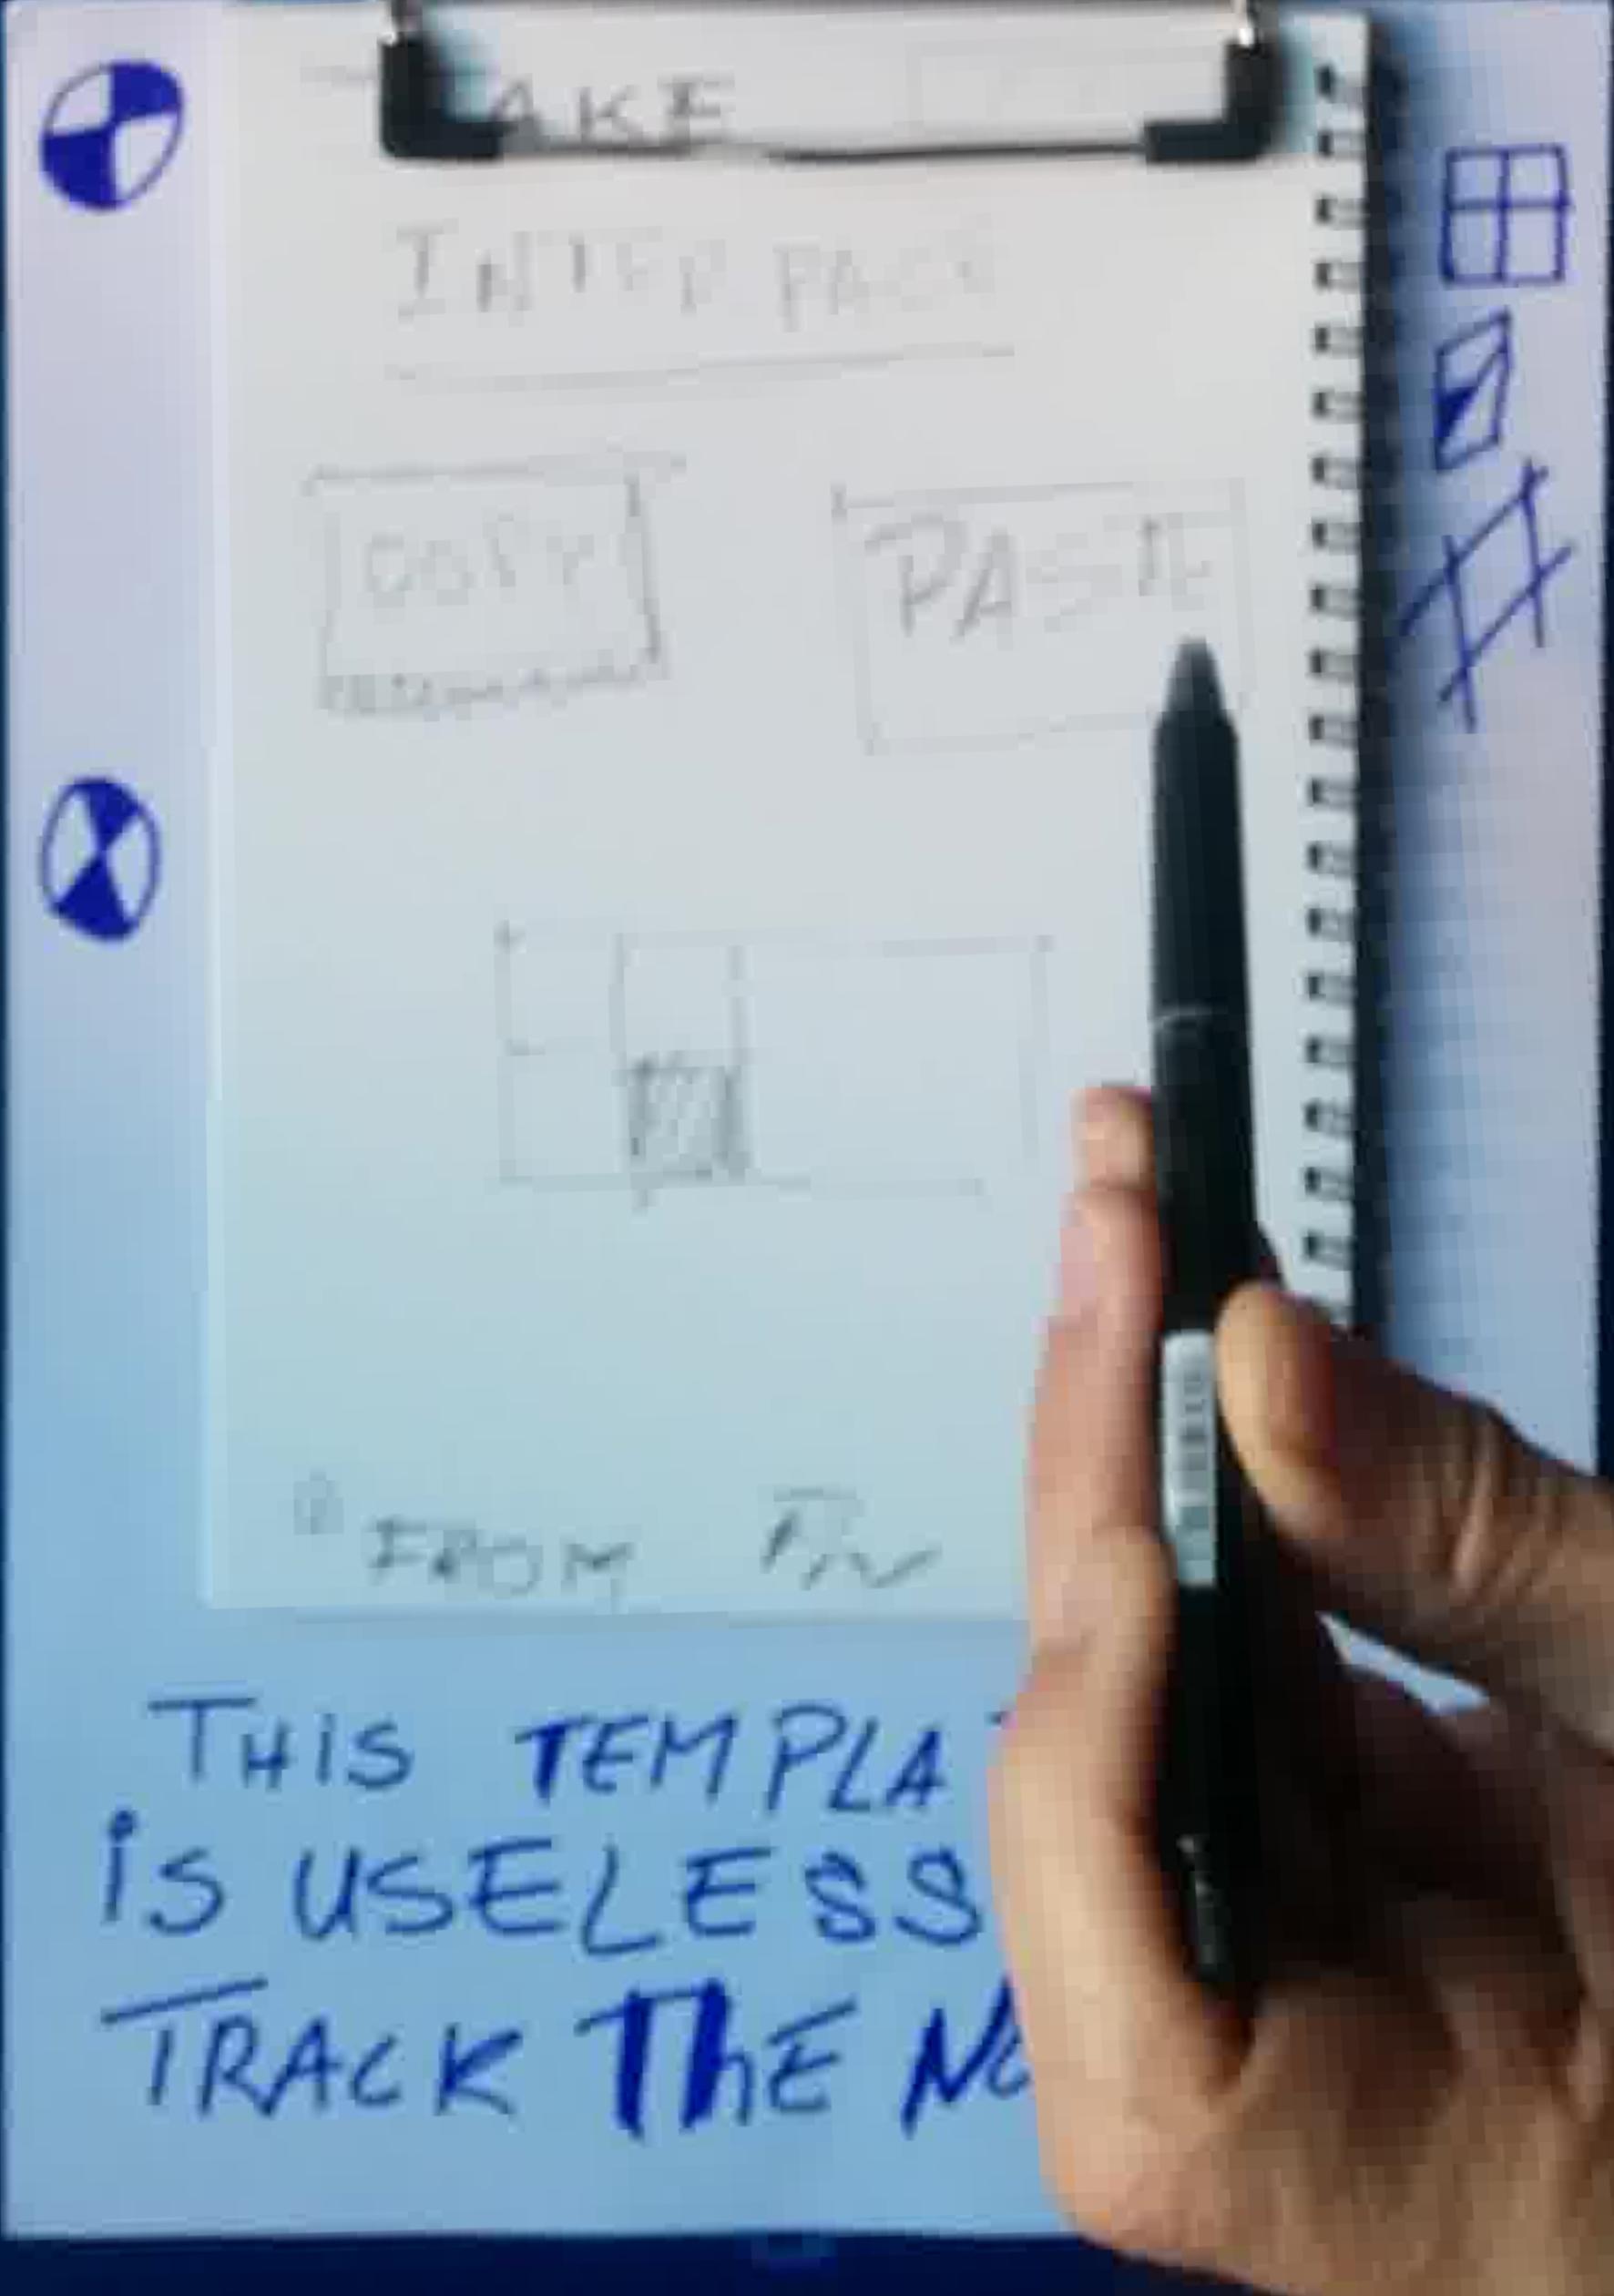 AKE
INTERFACE
COPY PASTE
FROM
THIS TEMPLA
is USELESS
TRACK ThE No